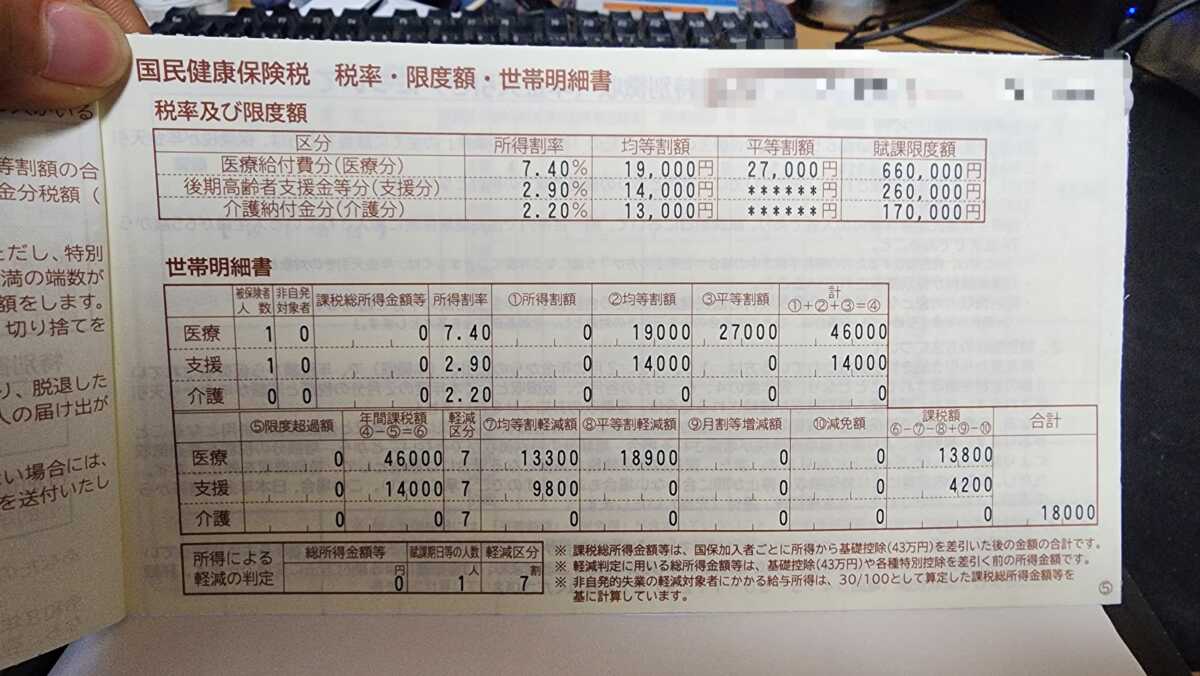 国民健康保険税 税率・限度額・世帯明細書
税率及び限度額
区分 所得割率 均等割額 平等割額 賦課限度額
医療給付費分(医療分) 7.40% 19,000円 27,000円 660,000円
後期高齢者支援金等分(支援分) 2.90% 14,000円 ******円 260,000円
介護納付金分(介護分) 2.20% 13,000円 ******円 170,000円
世帯明細書
被保険者人数 非自発対象者 課税総所得金額等 所得割率 ①所得割額 ②均等割額 ③平等割額 計①+②+③=④
医療 1 0 0 7.40 0 19000 27000 46000
支援 1 0 0 2.90 0 14000 0 14000
介護 0 0 0 2.20 0 0 0 0
⑤限度超過額 年間課税額④-⑤=⑥ 軽減区分 ⑦均等割軽減額 ⑧平等割軽減額 ⑨月割等増減額 ⑩減免額 課税額⑥-⑦-⑧+⑨-⑩ 合計
医療 0 46000 7 13300 18900 0 0 13800
支援 0 14000 7 9800 0 0 0 4200
介護 0 0 7 0 0 0 0 0 18000
所得による軽減の判定 総所得金額等 賦課期日等の人数 軽減区分
円 0 人 1 割 7
※ 課税総所得金額等は、国保加入者ごとに所得から基礎控除(43万円)を差引いた後の金額の合計です。
※ 軽減判定に用いる総所得金額等は、基礎控除(43万円)や各種特別控除を差引く前の所得金額です。
※ 非自発的失業の軽減対象者にかかる給与所得は、30/100として算定した課税総所得金額等を
基に計算しています。
⑤
等割額の合
金分税額(
ただし、特別
満の端数が
額をします。
切り捨てを
り、脱退した
人の届け出が
ない場合には、
を送付いたし